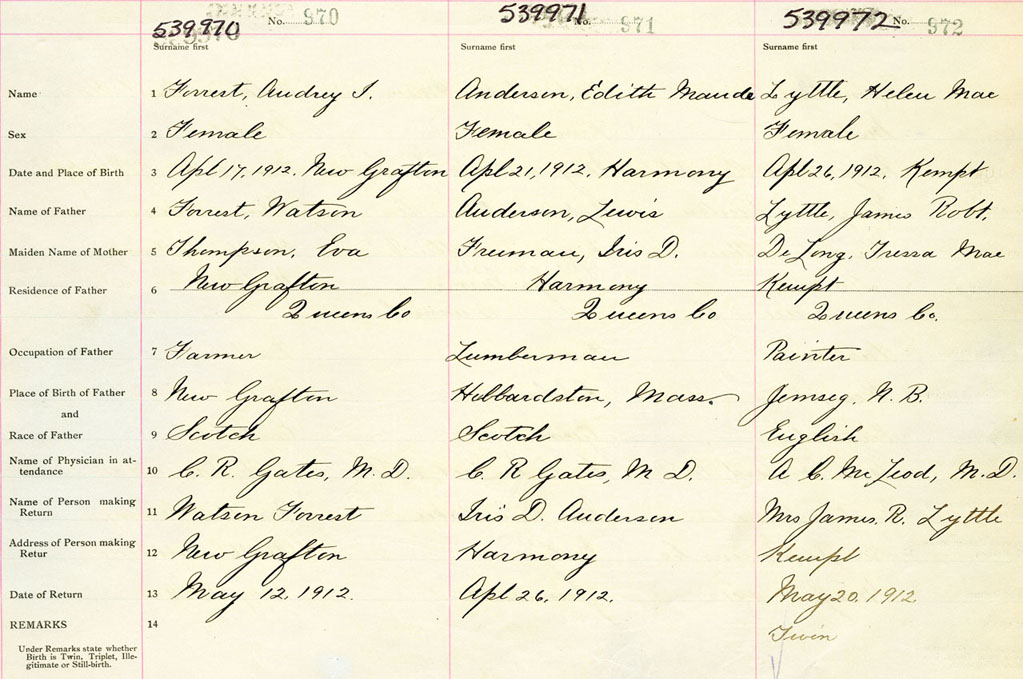 No. 970 No. 971 No. 972
539970 539971 539972
Surname first Surname first Surname first
Name 1 Forrest, Audrey I. Anderson, Edith Maude Lyttle, Helen Mae
Sex 2 Female Female Female
Date and Place of Birth 3 Apl 17, 1912. New Grafton Apl 21, 1912. Harmony Apl 26, 1912. Kempt
Name of Father 4 Forrest, Watson Anderson, Lewis Lyttle, James Robt.
Maiden Name of Mother 5 Thompson, Eva Freeman, Iris D. DeLong, Tressa Mae
Residence of Father 6 New Grafton Harmony Kempt
Queens Co Queens Co Queens Co.
Occupation of Father 7 Farmer Lumberman Painter
Place of Birth of Father 8 New Grafton Hibbardston, Mass. Jemseg, N. B.
and
Race of Father 9 Scotch Scotch English
Name of Physician in at-
tendance 10 C. R. Gates, M. D. C. R Gates, M D. A C. McLeod, M. D.
Name of Person making
Return 11 Watson Forrest Iris D. Anderson Mrs James. R. Lyttle
Address of Person making
Retur 12 New Grafton Harmony Kempt
Date of Return 13 May 12, 1912. Apl 26, 1912. May 20, 1912
REMARKS 14 Twin
Under Remarks state whether
Birth is Twin, Triplet, Ille-
gitimate or Still-birth.